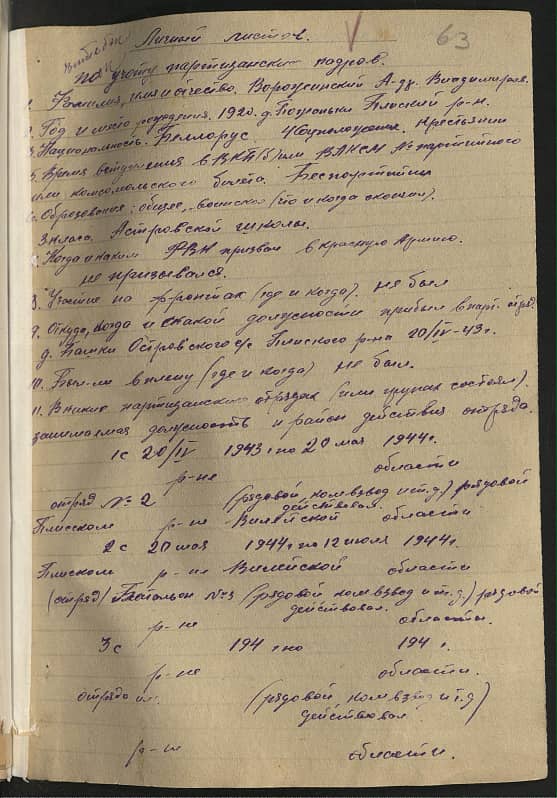 63
Личный листок.
по учёту партизанских кадров.
1. Фамилия, имя и отчество. Ворошинский А-др. Владимиров.
2. Год и место рождения. 1920. д. Плиский р-н.
3. Национальность. Белорус 4 Соцположения. Крестьянин
5. Время вступления в ВКП(б) или ВЛКСМ № партийного
или комсомольского билета. Беспартийный
6. Образование: общее, воинское (что и когда окончил).
3 класса Астровской школы.
7. Когда и каким РВК призван в Красную Армию.
не призывался.
8. Участие на фронтах (где и когда). не был
9. Откуда, когда и с какой должности прибыл в парт. отряд.
д. Островского с/с Плиского р-на 20/IV-43г.
10. Был-ли в плену (где и когда) не был.
11. В каких партизанских отрядах (или групах состоял).
занимаемая должность и район действия отряда.
1 с 20/IV 1943 г по 20 мая 1944г.
р-не области
отряд № 2 (рядовой, ком. взвод и т.д.) рядовой
действовал.
Плисском р-не Вилейской области
2 с 20 мая 1944 г по 12 июля 1944г.
Плиском р-не Вилейской области
(отряд) Батальон №3 (рядовой ком взвод и т.д.) рядовой
действовал.
р-не области.
3 с 194 г по 194 г.
р-не области.
отряд им. (рядовой, ком. взвод и т.д)
действовал
р-не области.